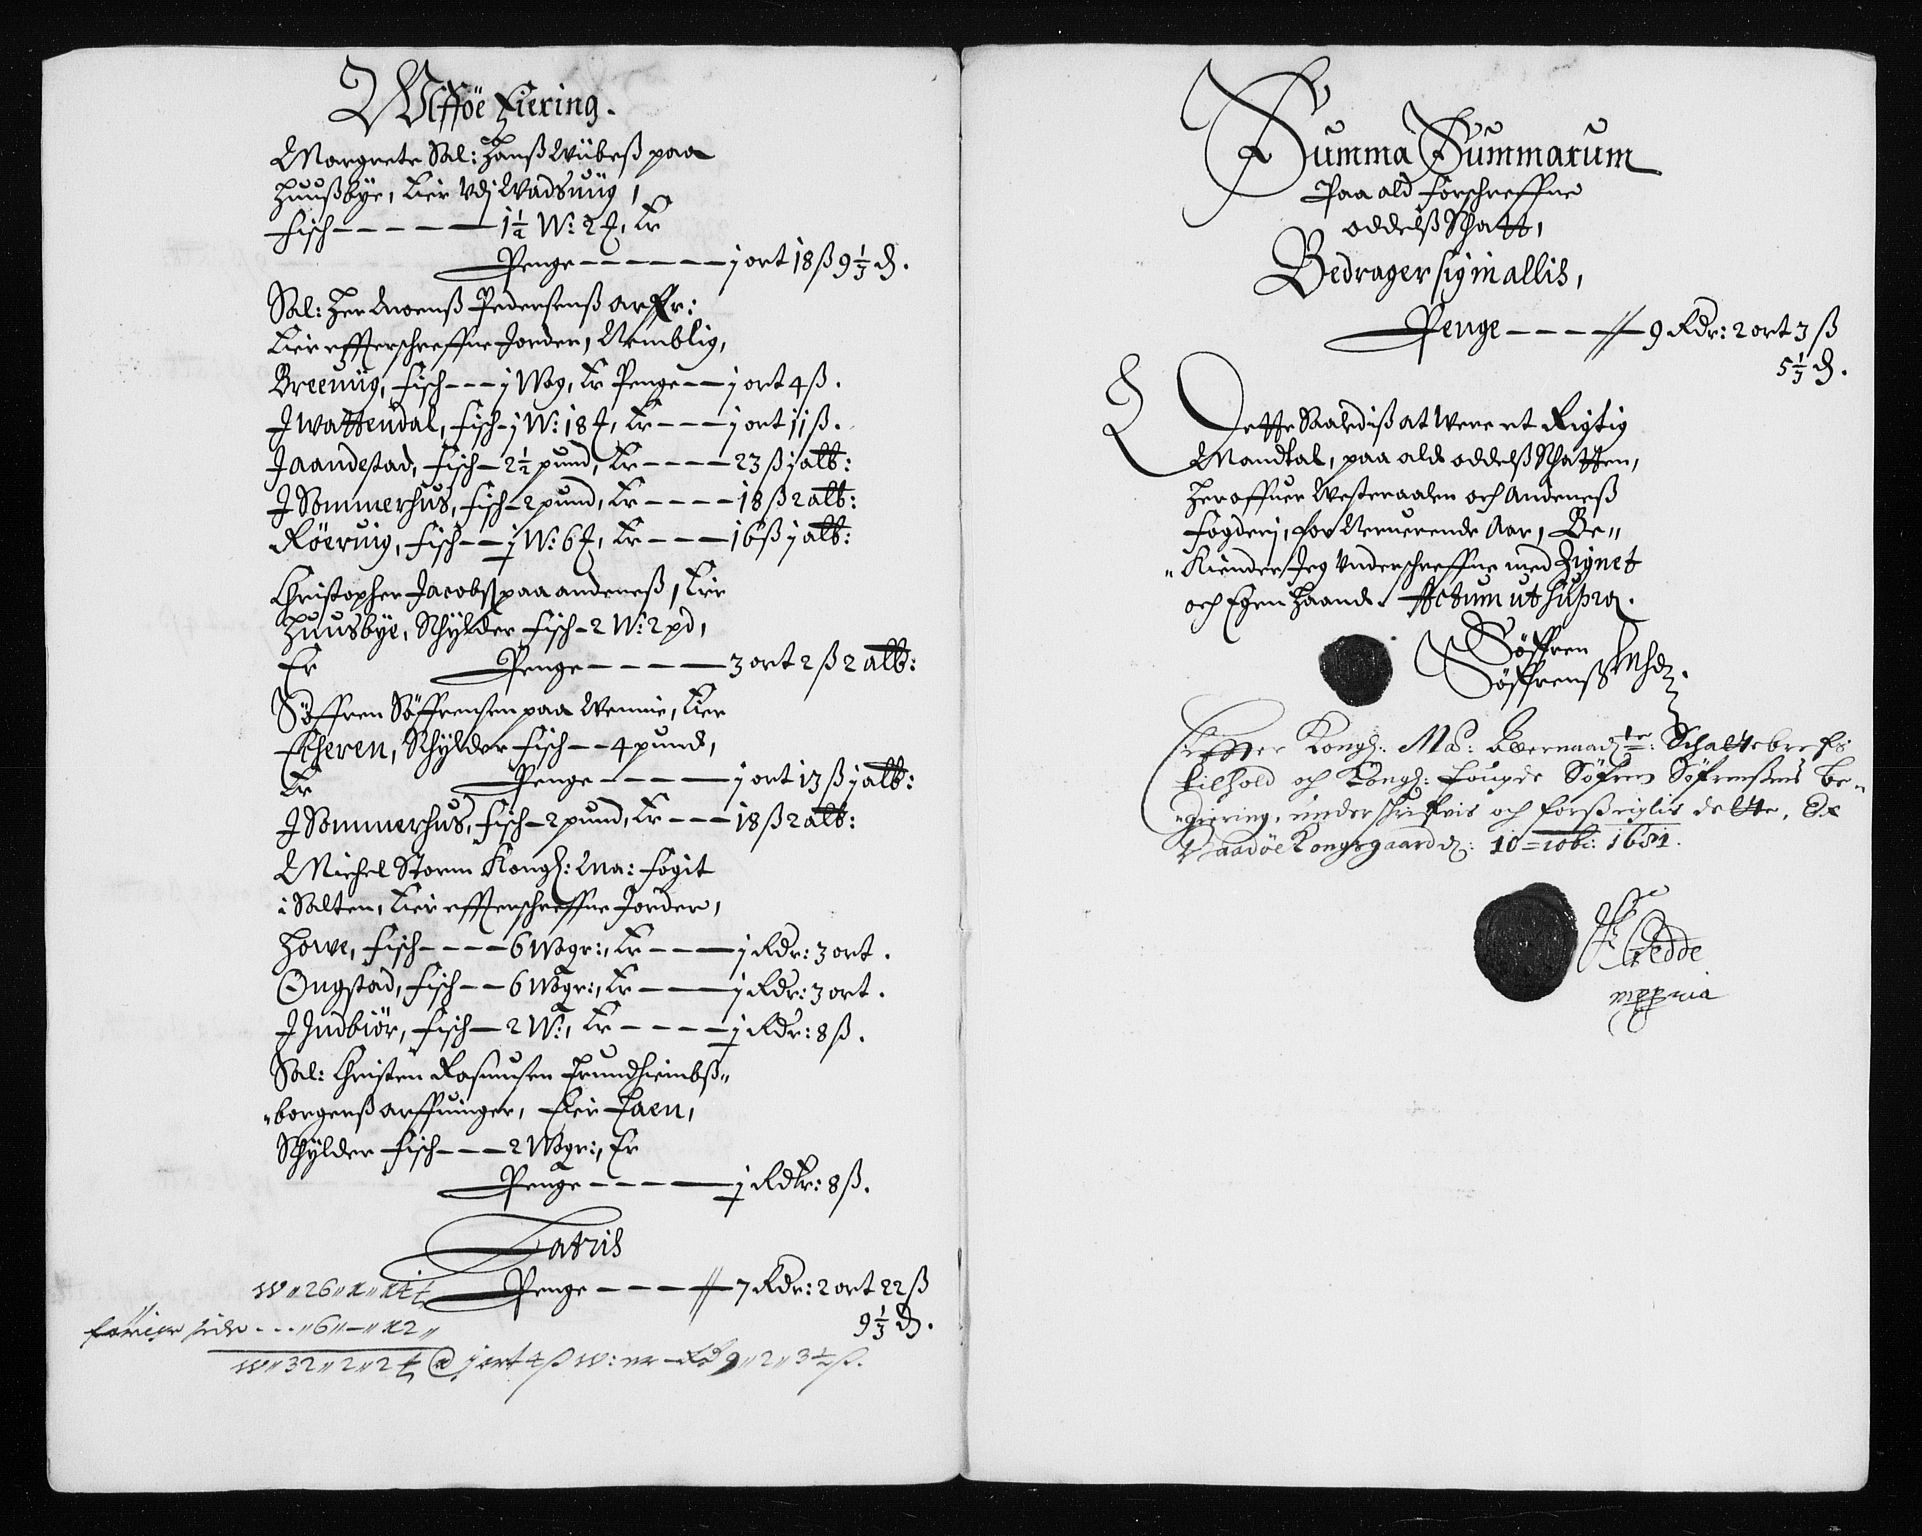 Ulfföe Fiering.
Margrete Sal: Hanß Wübeß paa
Huußbÿe, Eier Udj Wadsuiig,
Fisch – – – – – 1½ W: 2 ℔, Er
Penge – – – – – j ort 18 ß 9⅓ ₰.
Sal: Her Moenß Pedersenß arffr:
Eier effterschreffne Jorder, Nemblig,
Breeuiig, Fisch – – – j Wog, Er Penge – – j ort 4 ß.
J Wattendal, Fisch – j W: 18 ℔, Er – – – j ort 11 ß.
Jaandestad, Fisch – 2½ pund, Er – – – – 23 ß j alb:
J Sommerhus, Fisch – 2 pund, Er – – – – 18 ß 2 alb:
Röeruig, Fisch – – j W: 6 ℔, Er – – – 16 ß j alb:
Christopher Jacobß paa andeneß, Eier
Huusbÿe, Schÿlder Fisch – 2 W: 2 pd,
Er Penge – – – – – 3 ort 2 ß 2 alb:
Söffren Söffrensen paa Wennie, Eier
Scheren, Schÿlder Fisch – – 4 pund,
Er Penge – – – – – j ort 13 ß j alb:
J Sommerhus, Fisch – 2 pund, Er – – – 18 ß 2 alb:
Michel Storm Kongl: Ma: Fogit
i Salten, Eier effterschreffne Jorder,
Howe, Fisch – – – – 6 Wogr:, Er – – – j Rdr: 3 ort.
Ongstad, Fisch – – 6 Wogr:, Er – – – j Rdr: 3 ort.
J Indbiör, Fisch – 2 W:, Er – – – – – j Rdr: 8 ß.
Sal: Christen Rasmusen Trundhiembß„
„borgerß arffuinger, Eier Faen,
Schÿlder Fisch – – – 2 Wogr:, Er
Penge – – – – – j Rdr: 8 ß.
Latris
Penge – – – – 7 Rdr: 2 ort 22 ß
9⅓ ₰.
förige side - - - „ 6 „ – „ 12 „
W „ 32 „ 2 „ 2 ℔ @ j ort 4 ß W: er – Rd 9 „ 2 „ 3½ ß.
Summa Summarum
Paa ald forschreffne
oddelß Schatt,
Bedrager sig in allis,
Penge – – – – 9 Rdr: 2 ort 3 ß
5⅓ ₰.
Dette Saaledis at Were et Rigtig
Mandtal, paa alde oddelß Schatten,
Her offuer Westeraalen och Andeneß
Fogderj, for Neruerende Aar, Be„
„Kiender Jeg Underschreffne med Zignet
och Egen Haand. Actum ut Supra.
Söffren
Söffrenß Mhd.
Effter Kongl: Ma: Schattebrefs
tilhold och Kongl: Fougde Söfren Söfrensens be„
„giering, underskrifvis och forseiglis dette, Ex
Vaadöe Kongsgaard d: 10 = 10br: 1681.
Tredde
mppria